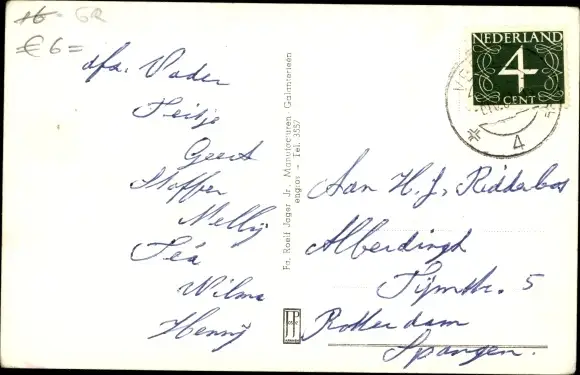 16 GR
€ 6 =
afz. Vader
Feitje
Geert
Stoffer
Melly
Téa
Wilma
Henny
Fa. Roelf Jager Jr. Manufacturen - Galanterieën
engros - Tel. 3557
NEDERLAND
4
CENT
4
Aan H.J. Ridderbos
Alberdingk
Tijmstr. 5
Rotterdam
Spangen.